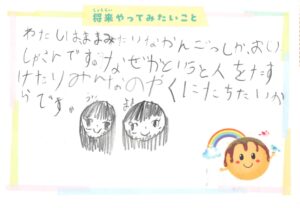 しょうらい
将来やってみたいこと
わたしはままみたいなかんごっしか、おい
しゃさんです。なぜかというと人をたす
けたりみんなのやくにたちたいか
らです。